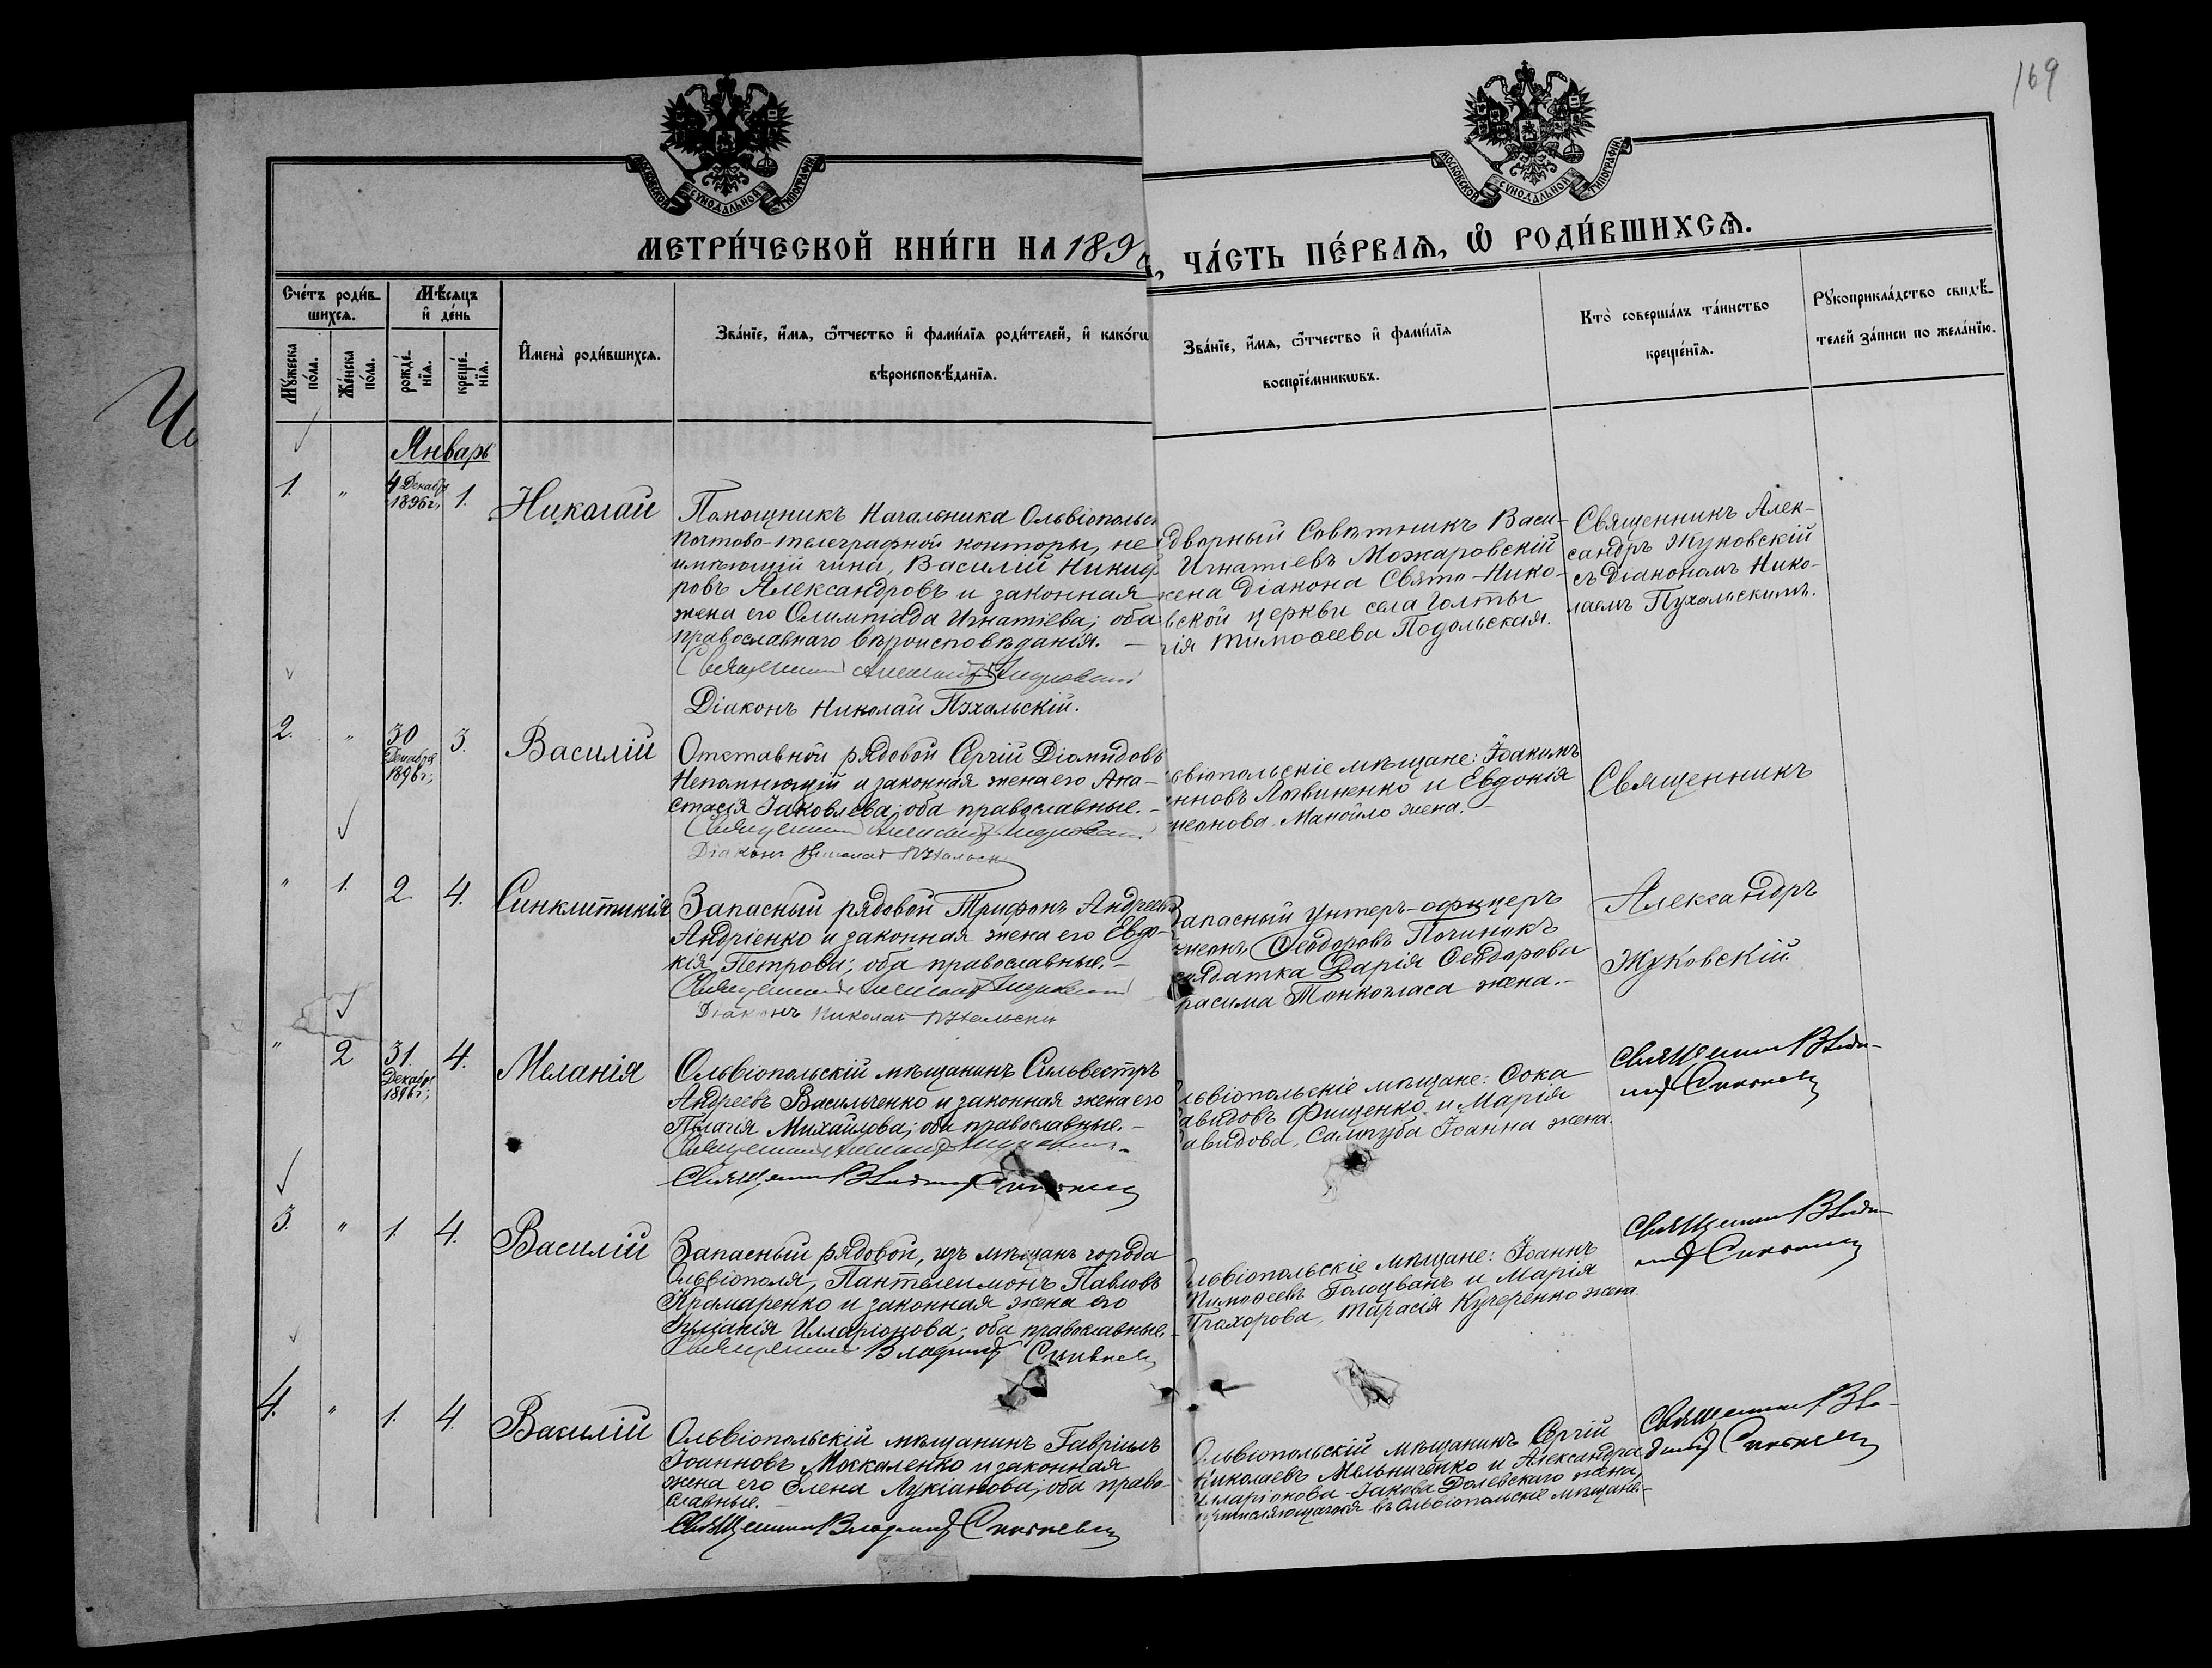 169
МОСКОВСКОЙ СУНОДАЛЬНОЙ ТИПОГРАФІИ
МОСКОВСКОЙ СУНОДАЛЬНОЙ ТИПОГРАФІИ
МЕТРИ́ЧЕСКОЙ КНИ́ГИ НА 189
ЧА́СТЬ ПЕ́РВАѦ, Ѡ РОДИ́ВШИХСѦ.
Сче́тъ роди́в-
шихсѧ.
Мѣ́сѧцъ
и҆ де́нь
Мꙋ́жеска
по́ла.
Же́нска
по́ла.
рожде́-
нїѧ.
креще́-
нїѧ.
И҆мена̀ роди́вшихсѧ.
Зва́нїе, и҆́мѧ, ѻ҆́тчество и҆ фами́лїѧ роди́телей, и҆ како́гѡ
вѣроисповѣ́данїѧ.
Зва́нїе, и҆́мѧ, ѻ҆́тчество и҆ фами́лїѧ
воспрїе́мникѡвъ.
Кто̀ соверша́лъ та́инство
креще́нїѧ.
Рꙋкоприкла́дство свидѣ́-
телей за́писи по жела́нїю.
Январь
1. " 4 Декабр 1896 г., 1. Николай
Помощникъ Начальника Ольвіопольс
Почтово-телеграфной конторы, не
имѣющій чина, Василій Никиф
ровъ Александровъ и законная
жена его Олимпіада Игнатіева; оба
православнаго вѣроисповѣданія. —
Священникъ Александръ Жуковскій
Діаконъ Николай Пухальскій.
Дворный Совѣтникъ Васи-
Игнатіевъ Можаровскій
жена діакона Свято-Нико-
вской церкви села Голты
рія Тимоѳеева Подольская.
Священникъ Алек-
сандръ Жуковскій
съ діакономъ Нико-
лаемъ Пухальскимъ.
2. " 30 Декабря 1896 г., 3. Василій
Отставной рядовой Сергій Діомидовъ
Непомнющій и законная жена его Ана-
стасія Іаковлева; оба православные. —
Священникъ Александръ Жуковскій
Діаконъ Николай Пухальскі
ьвіопольскіе мѣщане: Іоакимъ
нновъ Литвиненко и Евдокія
меонова Манойло жена. —
Священникъ
" 1. 2. 4. Синклитикія
Запасный рядовой Трифонъ Андреевъ
Андріенко и законная жена его Евдо-
кія Петрова; оба православные. —
Священникъ Александръ Жуковскій
Діаконъ Николай Пухальскі
Запасный унтеръ-офицеръ
меонъ Ѳеодоровъ Починокъ
солдатка Дарія Ѳеодорова
расима Тонкогласа жена. —
Александръ
Жуковскій.
" 2 31. Декабр 1896 г., 4. Меланія
Ольвіопольскій мѣщанинъ Сильвестръ
Андреевъ Васильченко и законная жена его
Пелагія Михайлова; оба православные. —
Священникъ Александръ Жуковскій
Священникъ Владимір
львіопольскіе мѣщане: Ѳока
авидовъ Фищенко и Марія
авидова, Самогуба Іоанна жена.
Священникъ Влади-
мір
3. " 1. 4. Василій
Запасный рядовой, изъ мѣщанъ города
Ольвіополя, Пантелеимонъ Павловъ
Крамаренко и законная жена его
Іуліанія Илларіонова; оба православные.
Священникъ Владимір
львіопольскіе мѣщане: Іоаннъ
Тимоѳеевъ Голоцванъ и Марія
Прохорова, Тарасія Кучеренко жена.
Священникъ Влади-
мір
4. " 1. 4. Василій
Ольвіопольскій мѣщанинъ Гавріилъ
Іоанновъ Москаленко и законная
жена его Елена Лукіанова; оба право-
славные. —
Священникъ Владимір
Ольвіопольскій мѣщанинъ Сергій
Николаевъ Мельниченко и Александра
Илларіонова Іакова Долевскаго жена,
причисляющагося въ Ольвіопольскіе мѣщане. —
Священникъ Вла-
димір